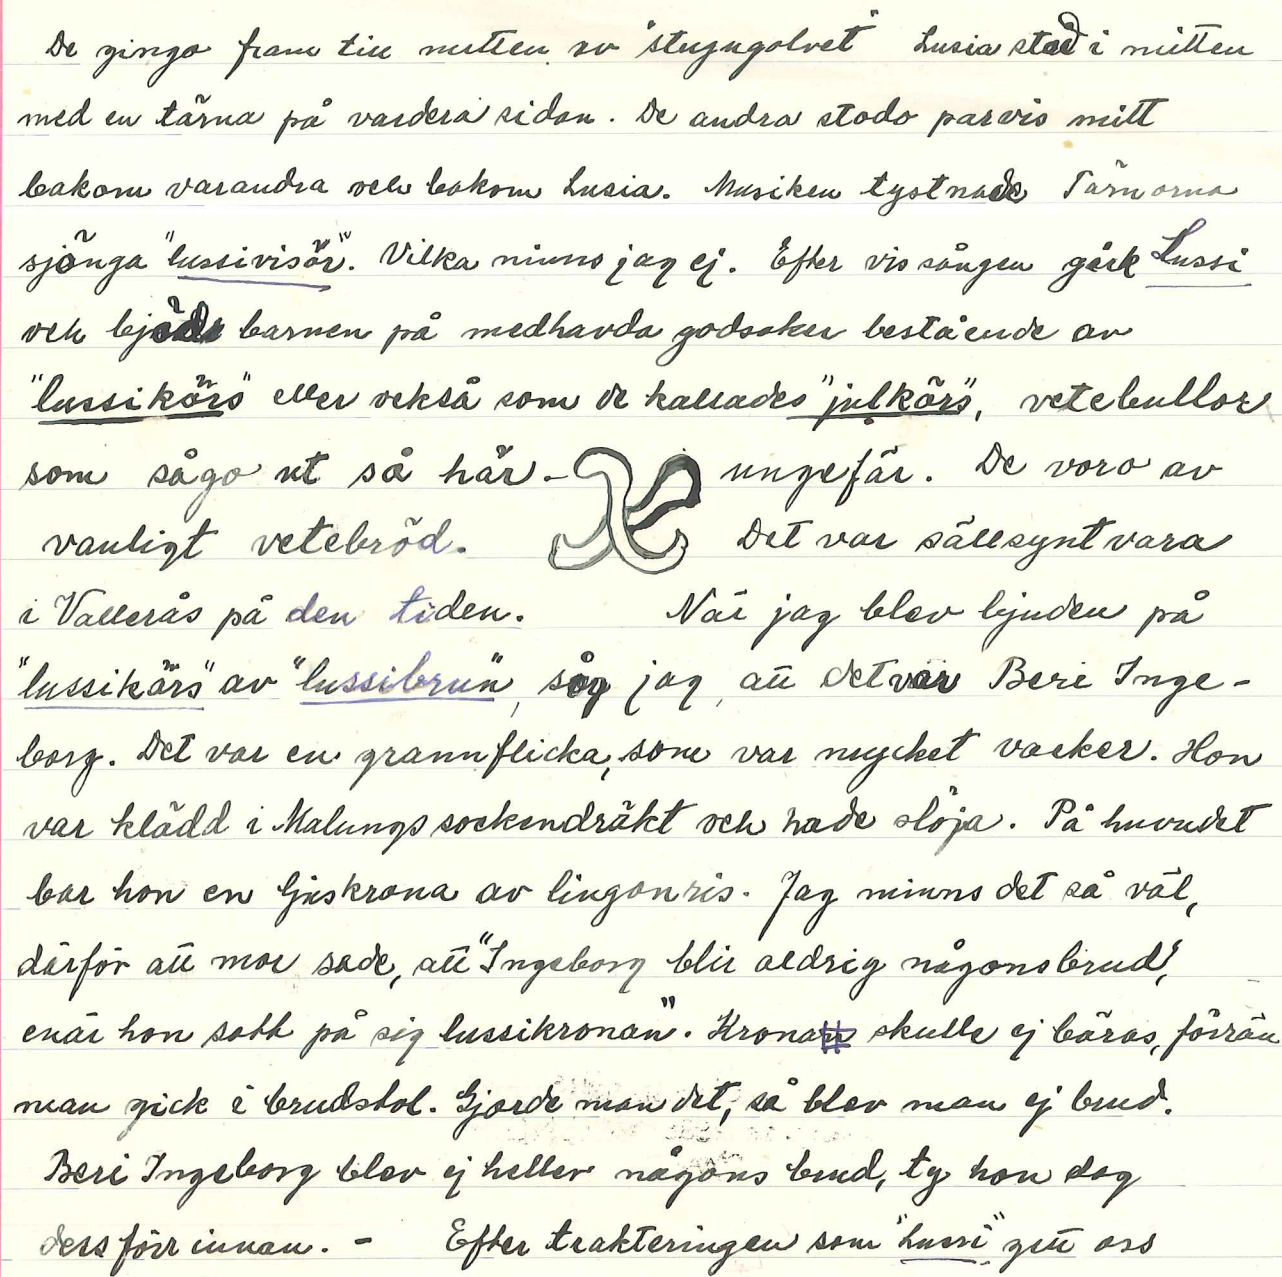 De gingo fram till mitten av "stugugolvet" Lusia stod i mitten
med en tärna på vardera sidan. De andra stodo parvis mitt
bakom varandra och bakom Lusia. Musiken tystnade Tärnorna
sjönga "lussivisör". Vilka minns jag ej. Efter vissången gick Lussi
och bjöd barnen på medhavda godsaker bestående av
"lussikörs" eller också som de kallades "julkörs", vetebullor
som sågo ut så här - ungefär. De voro av
vanligt vetebröd. Det var sällsynt vara
i Vallerås på den tiden. När jag blev bjuden på
"lussikörs" av "lussibrun", såg jag, att det var Beri Inge-
borg. Det var en grannflicka, som var mycket vacker. Hon
var klädd i Malungs sockendräkt och hade slöja. På huvudet
bar hon en ljuskrona av lingonris. Jag minns det så väl,
därför att mor sade, att "Ingeborg blir aldrig någons brud",
enär hon satt på sig lussikronan". Kronan skulle ej bäras, förrän
man gick i brudstol. Gjorde man det, så blev man ej brud.
Beri Ingeborg blev ej heller någons brud, ty hon dog
dess förrinnan. - Efter trakteringen som "Lussi" gett oss